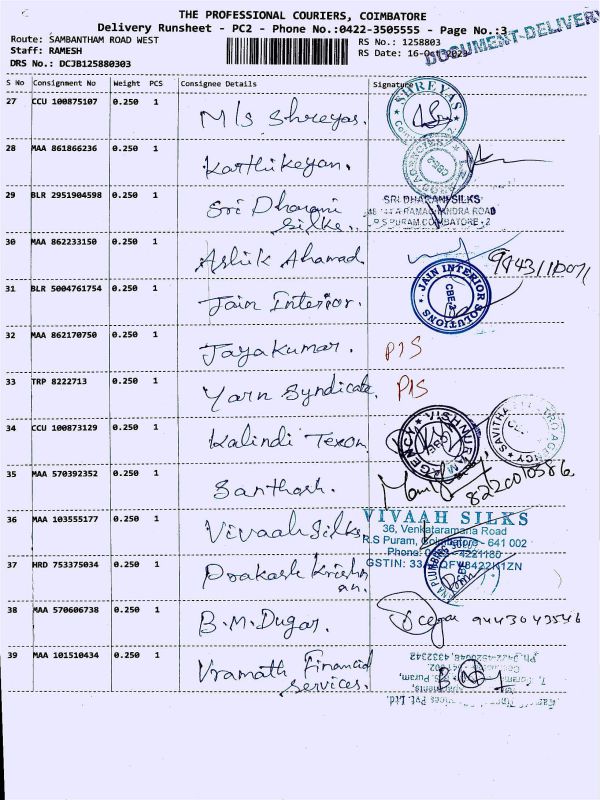 THE PROFESSIONAL COURIERS, COIMBATORE
Delivery Runsheet - PC2 - Phone No.:0422-3505555 - Page No.:3
Route: SAMBANTHAM ROAD WEST
Staff: RAMESH
DRS No.: DCJB125880303
RS No.: 1258803
RS Date: 16-Oct
DOCUMENT-DELIVERY
S No Consignment No Weight PCS Consignee Details Signature
27 CCU 100875107 0.250 1 M/s Shreyas. SHREYAS
28 MAA 861866236 0.250 1 Karthikeyan.
29 BLR 2951904598 0.250 1 Sri Dharani Silks.
SRI DHARANI SILKS
R.S PURAM, COIMBATORE - 2
30 MAA 862233150 0.250 1 Ashik Ahamad
31 BLR 5004761754 0.250 1 Jain Interior. JAIN INTERIOR SOLUTIONS CBE-2
32 MAA 862170750 0.250 1 Jayakumar. P1S
33 TRP 8222713 0.250 1 Yarn Syndicate. P1S
34 CCU 100873129 0.250 1 Kalindi Texon
35 MAA 570392352 0.250 1 Santhosh. 8220010586
36 MAA 103555177 0.250 1 Vivaah Silks
VIVAAH SILKS
36, Venkataramana Road
R.S Puram, Coimbatore - 641 002
37 HRD 753375034 0.250 1 Prakash Krishnan.
38 MAA 570606738 0.250 1 B.M.Dugar. 9443043546
39 MAA 101510434 0.250 1 Vramath Financial Services.